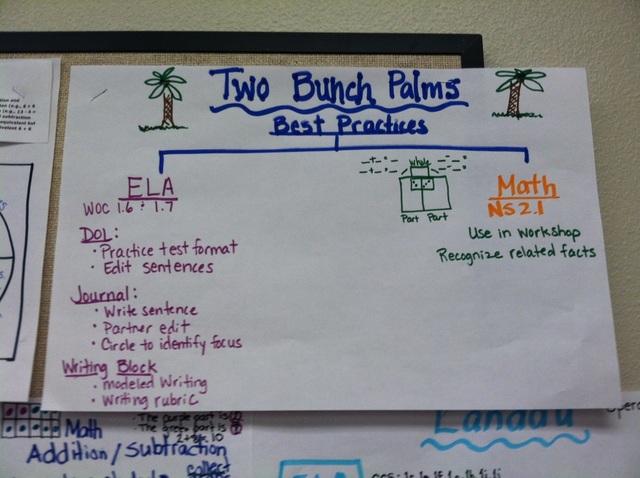 Two Bunch Palms
Best Practices
ELA
WOC 1.6 ÷ 1.7
DOL:
• Practice test format
• Edit sentences
Journal:
• Write sentence
• Partner edit
• Circle to identify focus
Writing Block
• modeled Writing
• Writing rubric
whole
Part Part
Math
NS 2.1
Use in workshop
Recognize related facts
Math
• The purple part is
• The green part is
Addition/Subtraction
collect
Landau